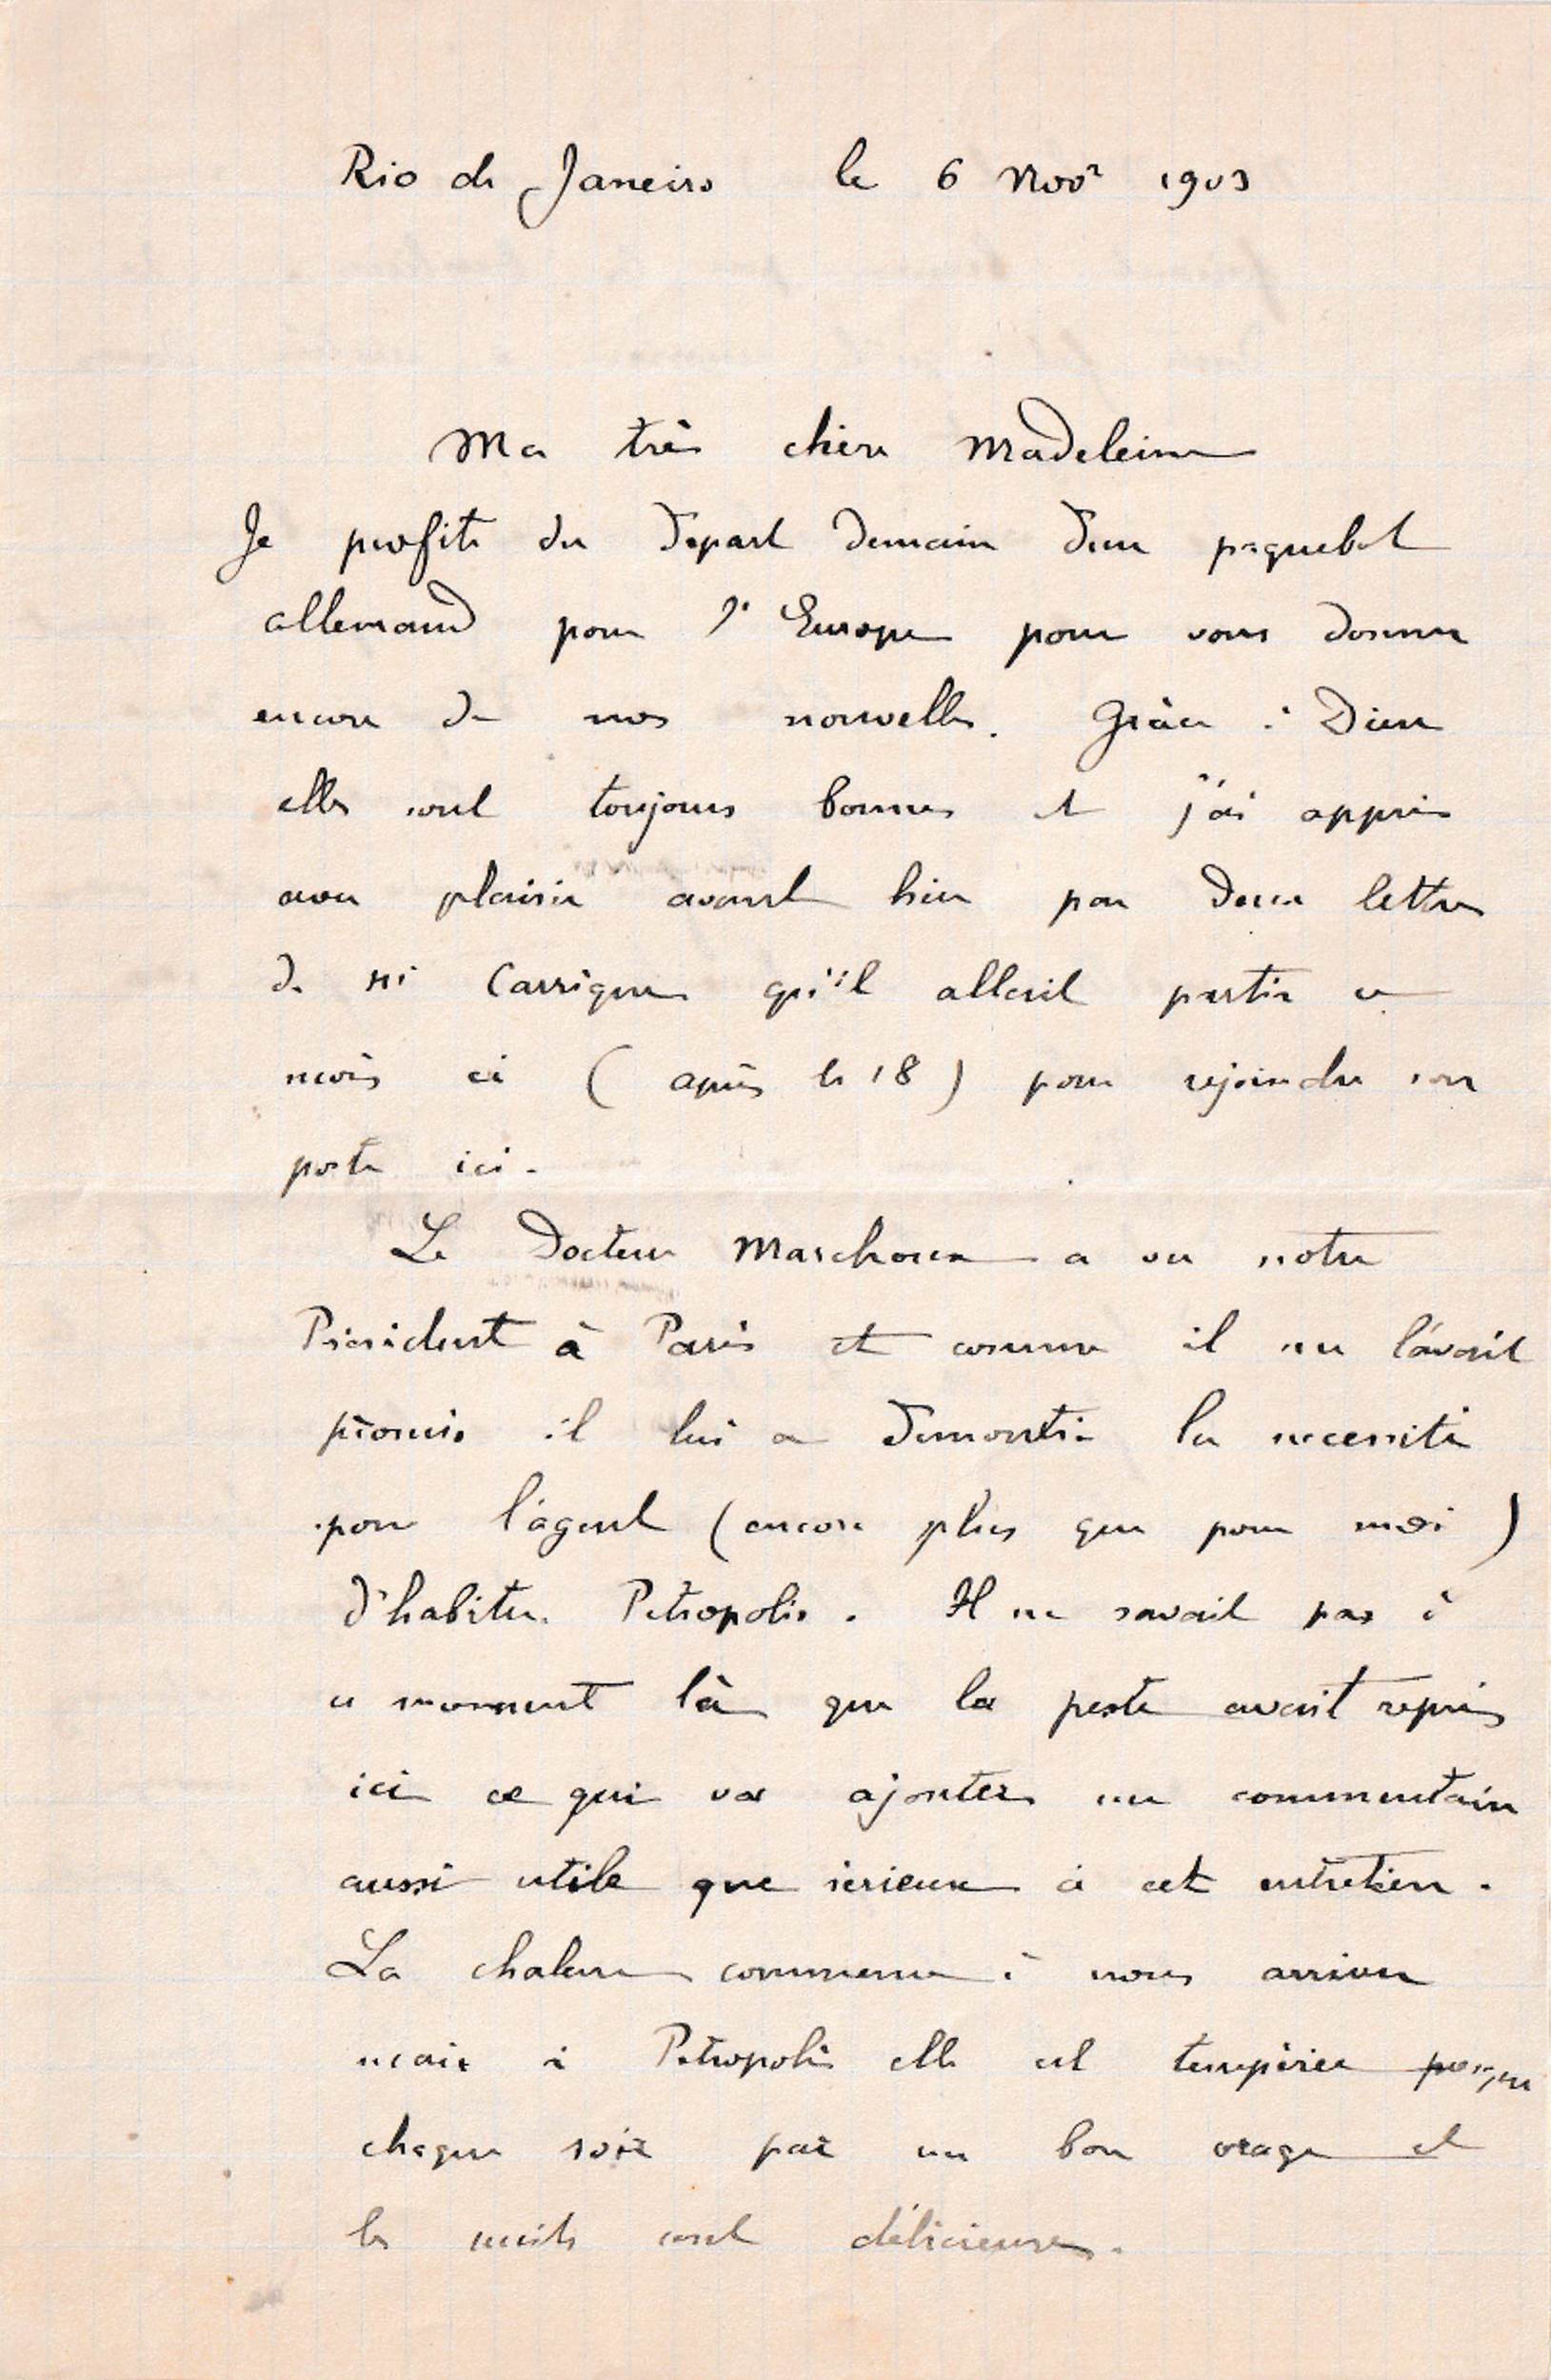 Rio de Janeiro le 6 Nov^r 1903
Ma très chère Madeleine
Je profite du départ demain d'un paquebot
allemand pour l'Europe pour vous donner
encore de nos nouvelles. Grâce à Dieu
elles sont toujours bonnes et j'ai appris
avec plaisir avant hier par deux lettres
de Carrique qu'il allait partir ce
mois ci (après le 18) pour rejoindre son
poste ici.
Le Docteur Marchoux a vu notre
Président à Paris et comme il me l'avait
promis il lui a démontré la necessité
pour l'agent (encore plus que pour moi)
d'habiter Petropolis. Il ne savait pas à
ce moment là que la peste avait repris
ici ce qui va ajouter un commentaire
aussi utile que sérieux à cet entretien.
La chaleur commence à nous arriver
mais à Petropolis elle est tempérée
chaque soir par un bon orage et
les nuits sont délicieuses.